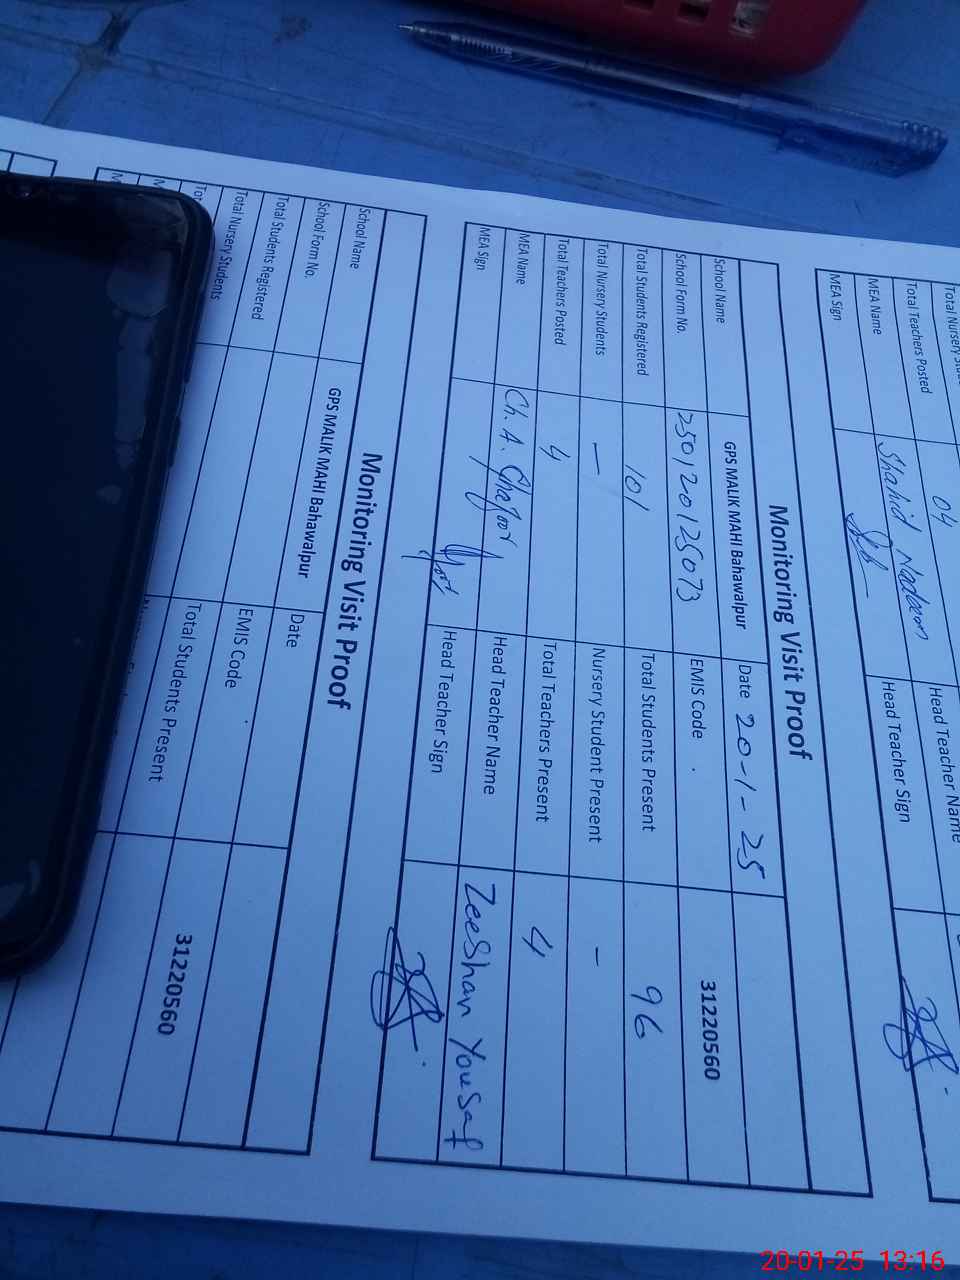 Total Nursery
Total Teachers Posted 04 Head Teacher Name
MEA Name Shahid Nadeem Head Teacher Sign
MEA Sign
Monitoring Visit Proof
School Name GPS MALIK MAHI Bahawalpur Date 20-1-25
School Form No. 250120125073 EMIS Code 31220560
Total Students Registered 101 Total Students Present 96
Total Nursery Students — Nursery Student Present -
Total Teachers Posted 4 Total Teachers Present 4
MEA Name Ch. A. Ghafoor Head Teacher Name Zeeshan Yousaf
MEA Sign Head Teacher Sign
Monitoring Visit Proof
School Name GPS MALIK MAHI Bahawalpur Date
School Form No. EMIS Code 31220560
Total Students Registered Total Students Present
Total Nursery Students
20-01-25 13:16